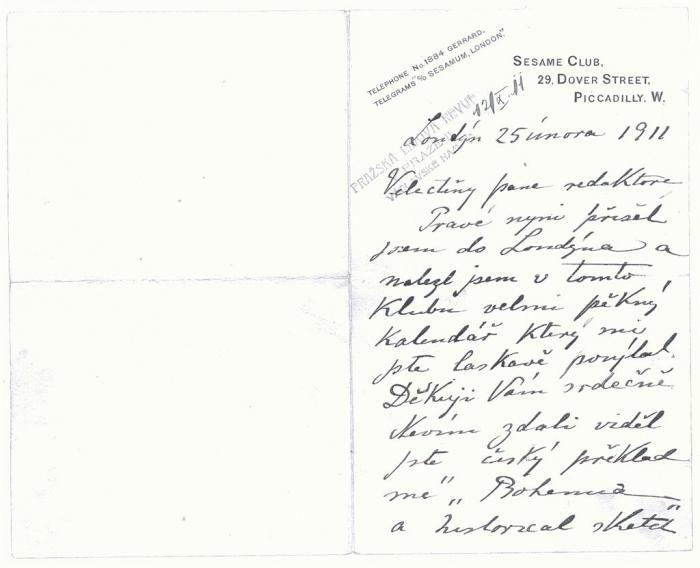 TELEPHONE No 1884 GERRARD.
TELEGRAMS "C/o SESAMUM, LONDON."
SESAME CLUB,
29, DOVER STREET,
PICCADILLY. W.
PRAŽSKÁ LIDOVÁ REVUE
PRAZE
Londýn 25 února 1911
Velectěný pane redaktore
Pravě nyni přišel
jsem do Londýna a
nalezl jsem v tomto
Klubu velmi pěkný
Kalendář který mi
jste laskavě posýlal.
Děkuji Vám srdečně
Nevím zdali viděl
jste český překlad
mé „ Bohemia
a historical sketch"